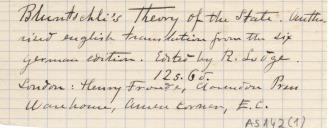 Bluntschli's Theory of the State. Autho
rised english translation from the six
german edition. Edited by R. Lodge.
12s. 6d.
London: Henry Frowde, Clarendon Press
Warehouse, Amen Corner, E.C.
AS142(1)